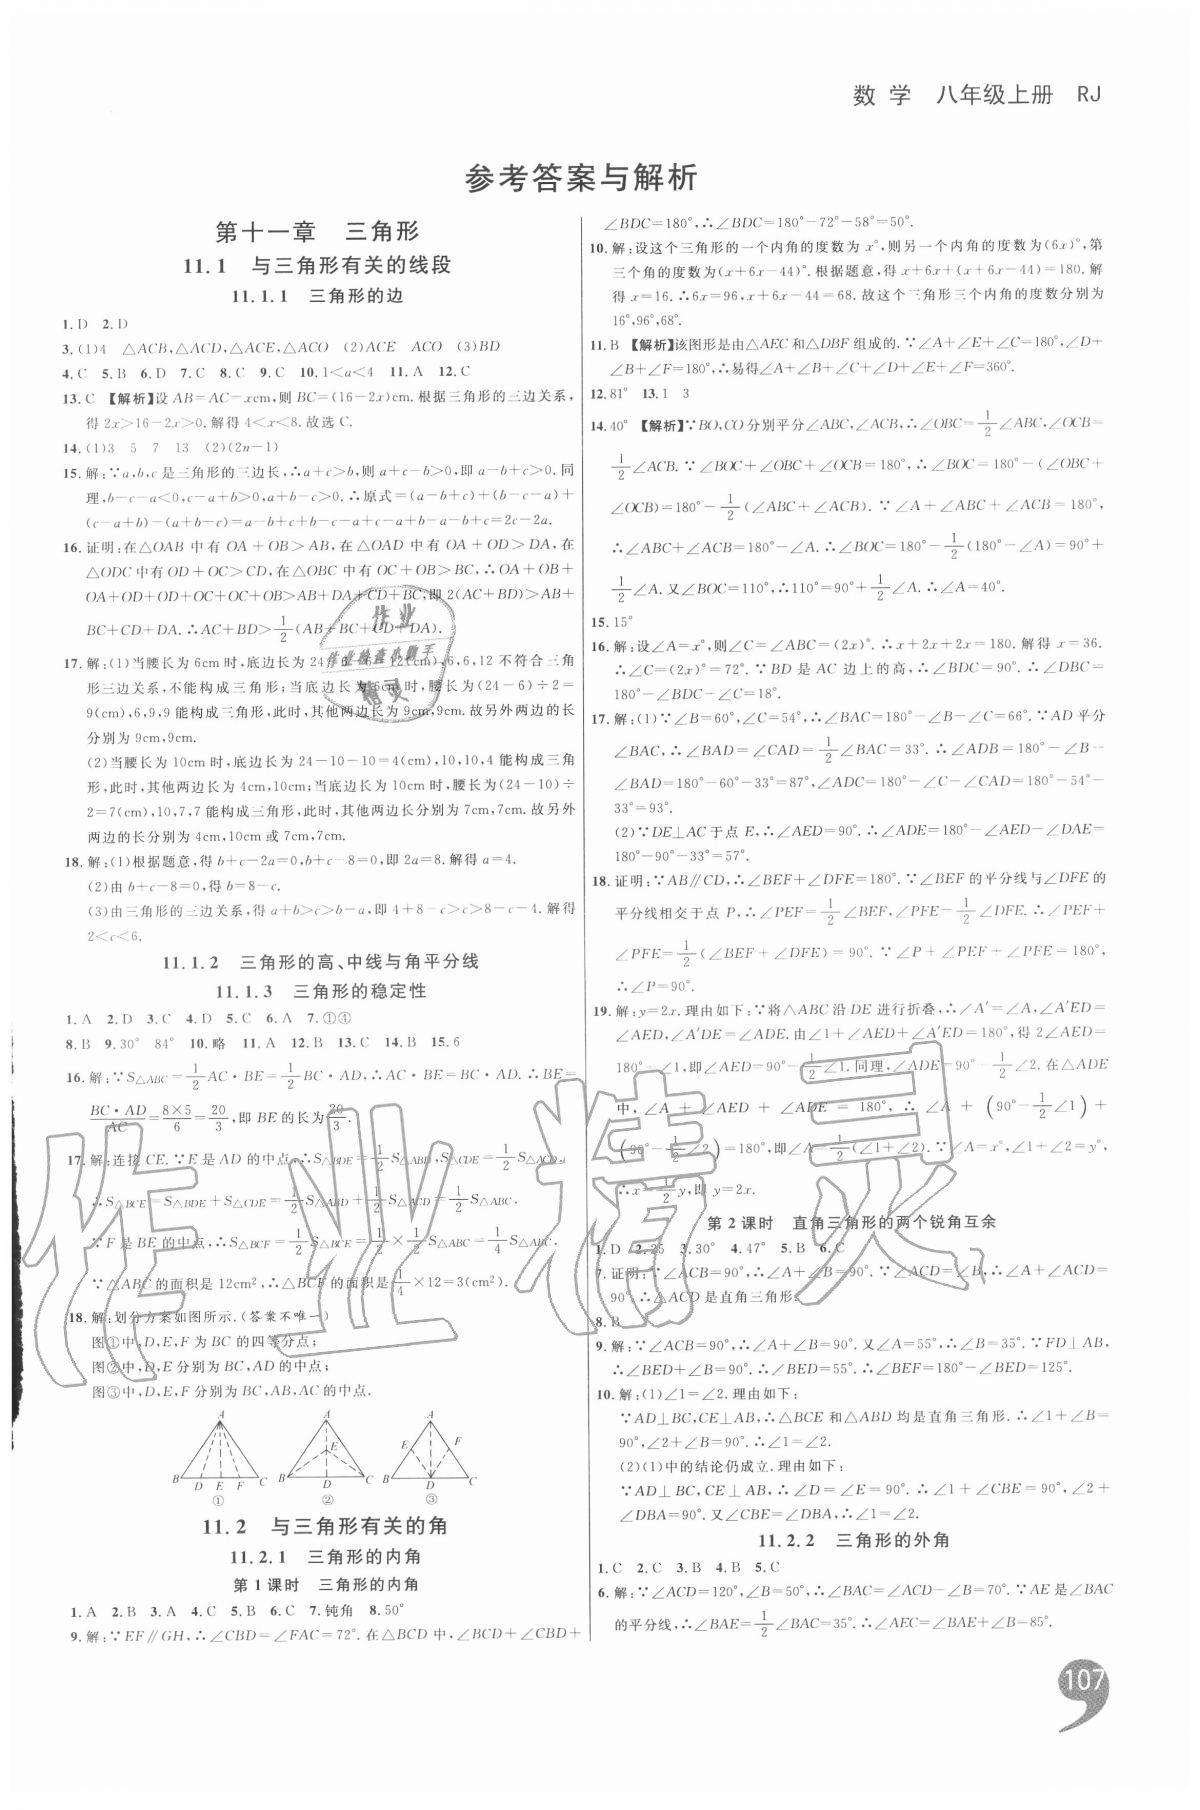 数学 八年级上册 RJ
参考答案与解析
第十一章 三角形
11.1 与三角形有关的线段
11.1.1 三角形的边
1. D 2. D
3. (1)4 △ACB,△ACD,△ACE,△ACO (2)ACE ACO (3)BD
4. C 5. B 6. D 7. C 8. C 9. C 10. 1<a<4 11. A 12. C
13. C 【解析】设 AB=AC=xcm,则 BC=(16-2x)cm. 根据三角形的三边关系,
得 2x>16-2x>0. 解得 4<x<8. 故选 C.
14. (1)3 5 7 13 (2)(2n-1)
15. 解:∵a,b,c 是三角形的三边长,∴a+c>b,则 a+c-b>0,即 a-b+c>0. 同
理,b-c-a<0,c-a+b>0,a+b-c>0. ∴原式=(a-b+c)+(b-c-a)+
(c-a+b)-(a+b-c)=a-b+c+b-c-a+c-a+b-a-b+c=2c-2a.
16. 证明:在△OAB 中有 OA+OB>AB,在△OAD 中有 OA+OD>DA,在
△ODC 中有 OD+OC>CD,在△OBC 中有 OB+OC>BC,∴OA+OB+
OA+OD+OD+OC+OC+OB>AB+DA+CD+BC,即 2(AC+BD)>AB+
BC+CD+DA. ∴AC+BD>1/2(AB+BC+CD+DA).
17. 解:(1)当腰长为 6cm 时,底边长为 24-6-6=12(cm),6,6,12 不符合三角
形三边关系,不能构成三角形;当底边长为 6cm 时,腰长为(24-6)÷2=
9(cm),6,9,9 能构成三角形,此时,其他两边长为 9cm,9cm. 故另外两边的长
分别为 9cm,9cm.
(2)当腰长为 10cm 时,底边长为 24-10-10=4(cm),10,10,4 能构成三角
形,此时,其他两边长为 4cm,10cm;当底边长为 10cm 时,腰长为(24-10)÷
2=7(cm),10,7,7 能构成三角形,此时,其他两边长分别为 7cm,7cm. 故另外
两边的长分别为 4cm,10cm 或 7cm,7cm.
18. 解:(1)根据题意,得 b+c-2a=0,b+c-8=0,即 2a=8. 解得 a=4.
(2)由 b+c-8=0,得 b=8-c.
(3)由三角形的三边关系,得 a+b>c>b-a,即 4+8-c>c>8-c-4. 解得
2<c<6.
11.1.2 三角形的高、中线与角平分线
11.1.3 三角形的稳定性
1. A 2. D 3. C 4. D 5. C 6. A 7. ①④
8. B 9. 30° 84° 10. 略 11. A 12. B 13. C 14. B 15. 6
16. 解:∵S△ABC=1/2AC·BE=1/2BC·AD,∴AC·BE=BC·AD. ∴BE=
BC·AD/AC=8×5/6=20/3,即 BE 的长为20/3.
17. 解:连接 CE. ∵E 是 AD 的中点,∴S△BDE=1/2S△ABD,S△CDE=1/2S△ACD.
∴S△BCE=S△BDE+S△CDE=1/2S△ABD+1/2S△ACD=1/2S△ABC.
∵F 是 BE 的中点,∴S△BCF=1/2S△BCE=1/2×1/2S△ABC=1/4S△ABC.
∵△ABC 的面积是 12cm²,∴△BCF 的面积是1/4×12=3(cm²).
18. 解:划分方案如图所示.(答案不唯一)
图①中,D,E,F 为 BC 的四等分点;
图②中,D,E 分别为 BC,AD 的中点;
图③中,D,E,F 分别为 BC,AB,AC 的中点.
A A A
E E F
B D E F C B D C B D C
① ② ③
11.2 与三角形有关的角
11.2.1 三角形的内角
第 1 课时 三角形的内角
1. A 2. B 3. A 4. C 5. B 6. C 7. 钝角 8. 50°
9. 解:∵EF∥GH,∴∠CBD=∠FAC=72°. 在△BCD 中,∠BCD+∠CBD+
∠BDC=180°,∴∠BDC=180°-72°-58°=50°.
10. 解:设这个三角形的一个内角的度数为 x°,则另一个内角的度数为(6x)°,第
三个角的度数为(x+6x-44)°. 根据题意,得 x+6x+(x+6x-44)=180. 解
得 x=16. ∴6x=96,x+6x-44=68. 故这个三角形三个内角的度数分别为
16°,96°,68°.
11. B 【解析】该图形是由△AEC 和△DBF 组成的. ∵∠A+∠E+∠C=180°,∠D+
∠B+∠F=180°,∴易得∠A+∠B+∠C+∠D+∠E+∠F=360°.
12. 81° 13. 1 3
14. 40° 【解析】∵BO,CO 分别平分∠ABC,∠ACB,∴∠OBC=1/2∠ABC,∠OCB=
1/2∠ACB. ∵∠BOC+∠OBC+∠OCB=180°,∴∠BOC=180°-(∠OBC+
∠OCB)=180°-1/2(∠ABC+∠ACB). ∵∠A+∠ABC+∠ACB=180°,
∴∠ABC+∠ACB=180°-∠A. ∴∠BOC=180°-1/2(180°-∠A)=90°+
1/2∠A. 又∠BOC=110°,∴110°=90°+1/2∠A. ∴∠A=40°.
15. 15°
16. 解:设∠A=x°,则∠C=∠ABC=(2x)°. ∴x+2x+2x=180. 解得 x=36.
∴∠C=(2x)°=72°. ∵BD 是 AC 边上的高,∴∠BDC=90°. ∴∠DBC=
180°-∠BDC-∠C=18°.
17. 解:(1)∵∠B=60°,∠C=54°,∴∠BAC=180°-∠B-∠C=66°. ∵AD 平分
∠BAC,∴∠BAD=∠CAD=1/2∠BAC=33°. ∴∠ADB=180°-∠B-
∠BAD=180°-60°-33°=87°,∠ADC=180°-∠C-∠CAD=180°-54°-
33°=93°.
(2)∵DE⊥AC 于点 E,∴∠AED=90°. ∴∠ADE=180°-∠AED-∠DAE=
180°-90°-33°=57°.
18. 证明:∵AB∥CD,∴∠BEF+∠DFE=180°. ∵∠BEF 的平分线与∠DFE 的
平分线相交于点 P,∴∠PEF=1/2∠BEF,∠PFE=1/2∠DFE. ∴∠PEF+
∠PFE=1/2(∠BEF+∠DFE)=90°. ∵∠P+∠PEF+∠PFE=180°,
∴∠P=90°.
19. 解:y=2x. 理由如下:∵将△ABC 沿 DE 进行折叠,∴∠A′=∠A,∠A′ED=
∠AED,∠A′DE=∠ADE. 由∠1+∠AED+∠A′ED=180°,得 2∠AED=
180°-∠1,即∠AED=90°-1/2∠1. 同理,∠ADE=90°-1/2∠2. 在△ADE
中,∠A+∠AED+∠ADE=180°,∴∠A+(90°-1/2∠1)+
(90°-1/2∠2)=180°,即∠A=1/2(∠1+∠2). ∵∠A=x°,∠1+∠2=y°,
∴x=1/2y,即 y=2x.
第 2 课时 直角三角形的两个锐角互余
1. D 2. 25 3. 30° 4. 47° 5. B 6. C
7. 证明:∵∠ACB=90°,∴∠A+∠B=90°. ∵∠ACD=∠B,∴∠A+∠ACD=
90°. ∴△ACD 是直角三角形.
8. B
9. 解:∵∠ACB=90°,∴∠A+∠B=90°. 又∠A=55°,∴∠B=35°. ∵FD⊥AB,
∴∠BED+∠B=90°. ∴∠BED=55°. ∴∠BEF=180°-∠BED=125°.
10. 解:(1)∠1=∠2. 理由如下:
∵AD⊥BC,CE⊥AB,∴△BCE 和△ABD 均是直角三角形. ∴∠1+∠B=
90°,∠2+∠B=90°. ∴∠1=∠2.
(2)(1)中的结论仍成立. 理由如下:
∵AD⊥BC,CE⊥AB,∴∠D=∠E=90°. ∴∠1+∠CBE=90°,∠2+
∠DBA=90°. 又∠CBE=∠DBA,∴∠1=∠2.
11.2.2 三角形的外角
1. C 2. C 3. B 4. B 5. C
6. 解:∵∠ACD=120°,∠B=50°,∴∠BAC=∠ACD-∠B=70°. ∵AE 是∠BAC
的平分线,∴∠BAE=1/2∠BAC=35°. ∴∠AEC=∠BAE+∠B=85°.
107
作业
作业检查小助手
精灵
作业精灵